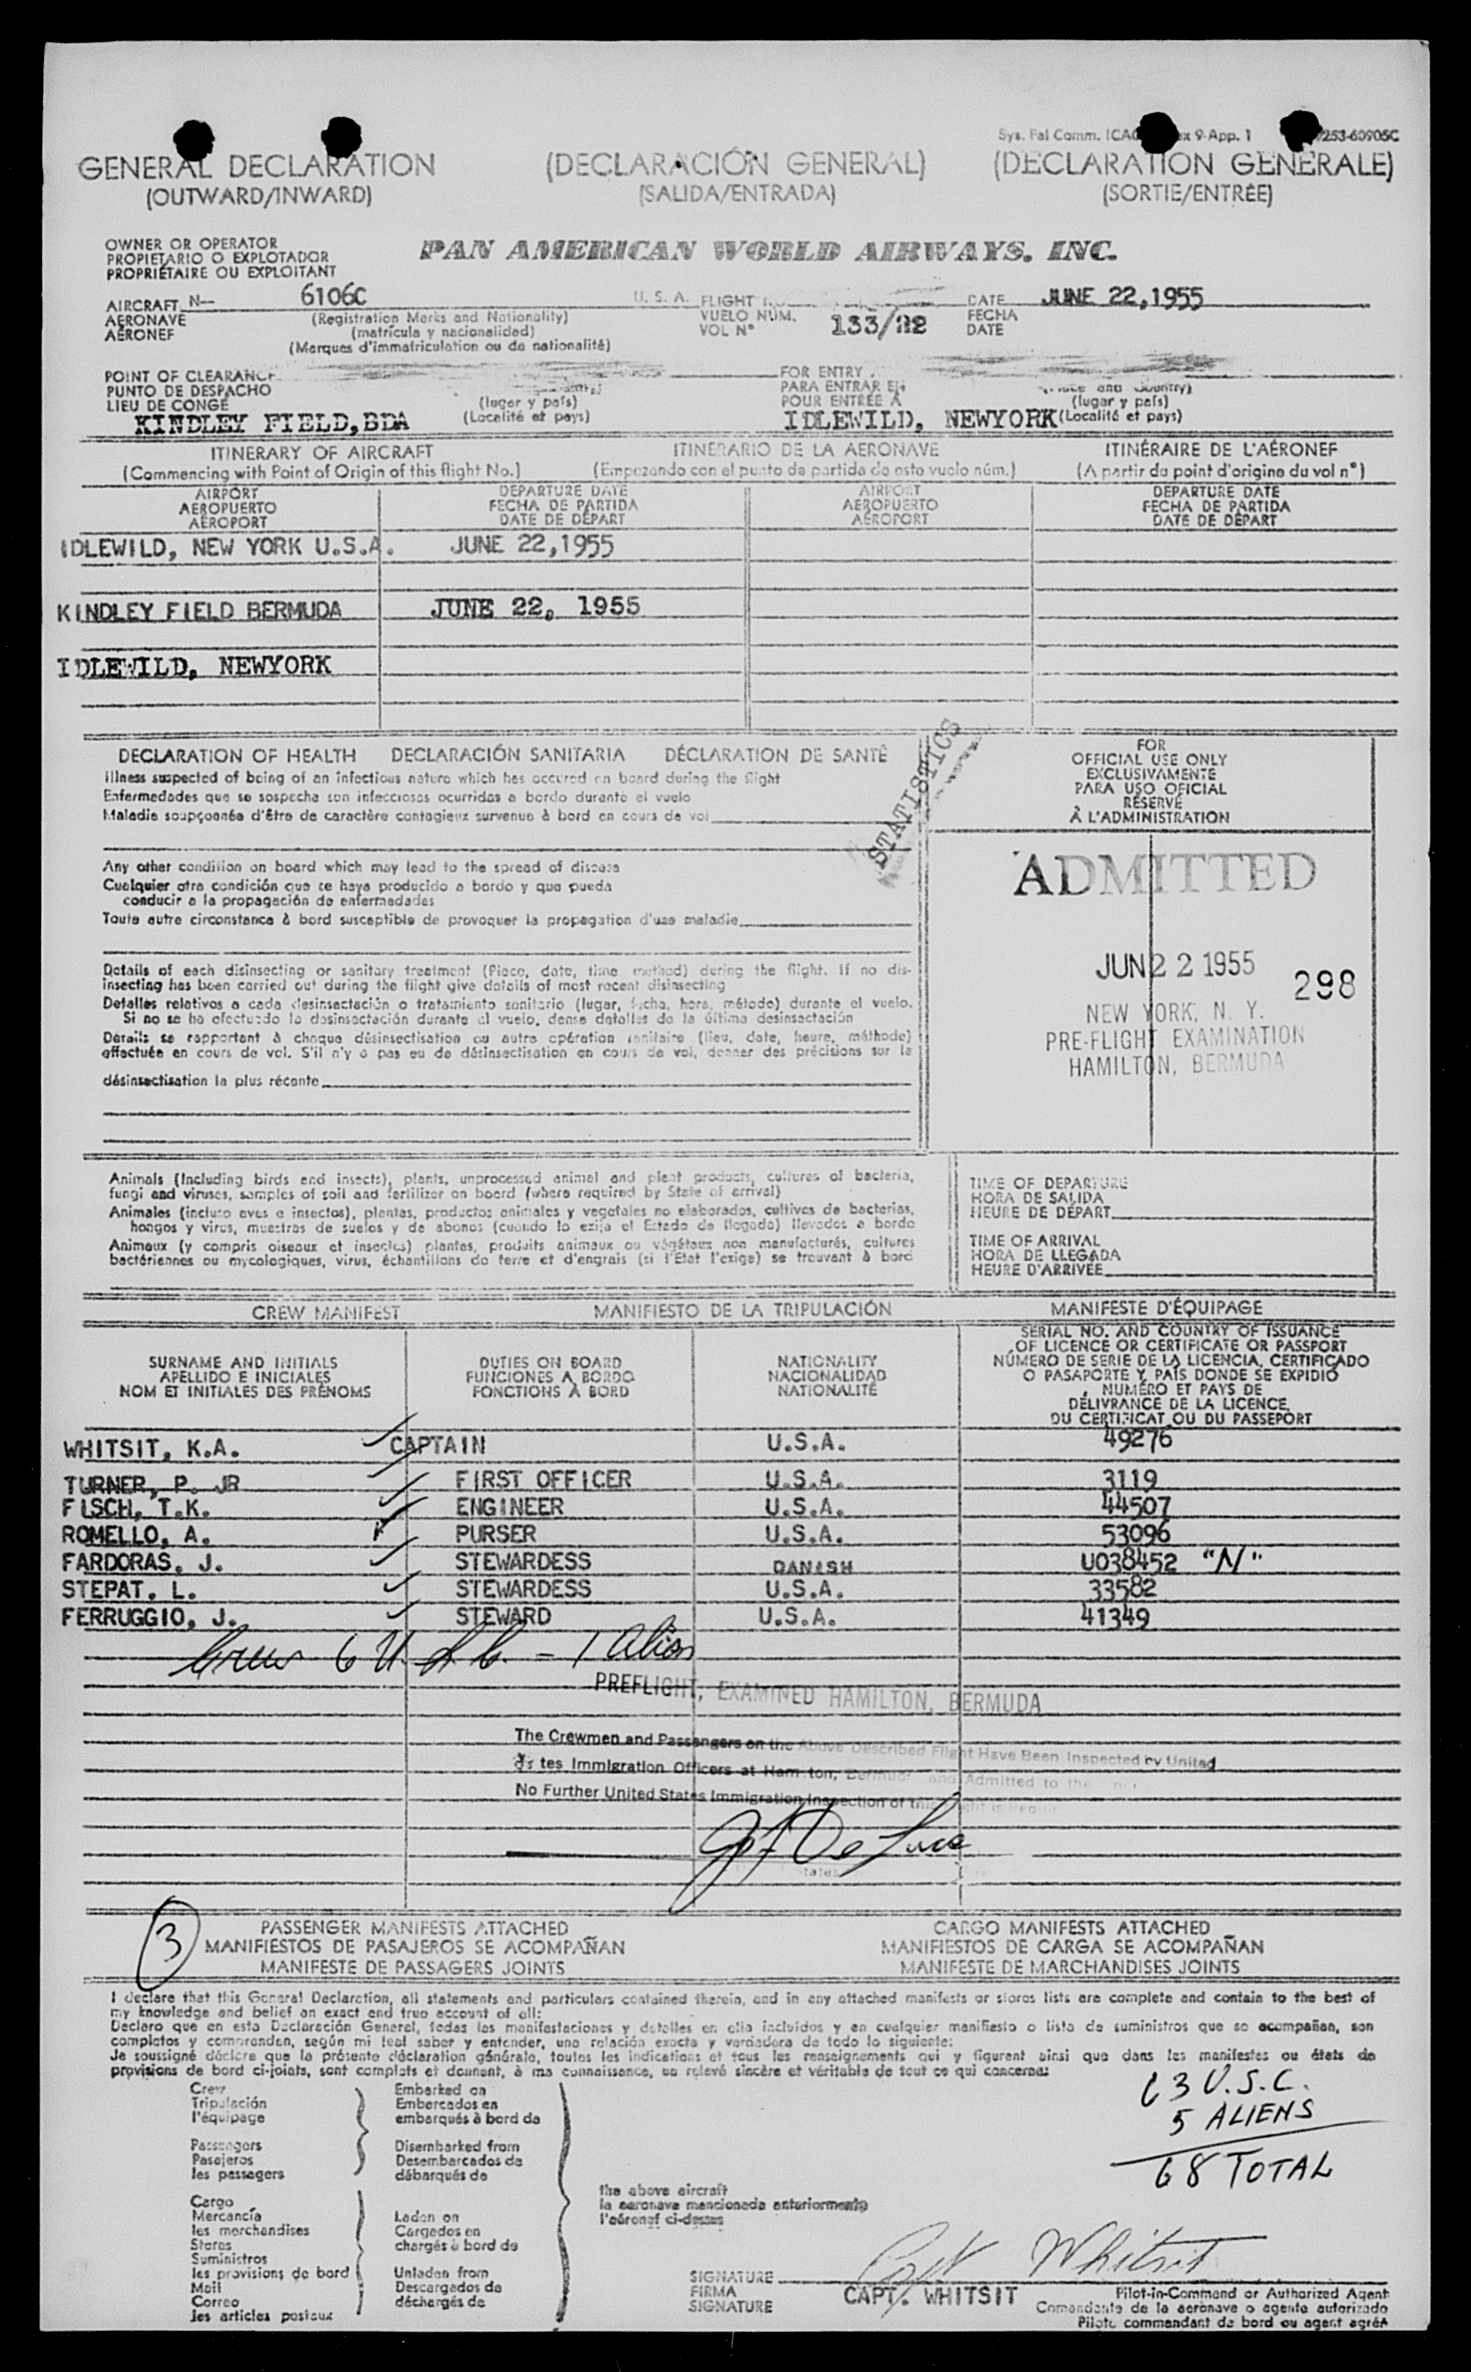 Sys. Fal Comm. ex 9-App. 1 7253-60905C
GENERAL DECLARATION (DECLARACIÓN GENERAL) (DECLARATION GÉNÉRALE)
(OUTWARD/INWARD) (SALIDA/ENTRADA) (SORTIE/ENTRÉE)
OWNER OR OPERATOR
PROPIETARIO O EXPLOTADOR
PROPRIÉTAIRE OU EXPLOITANT
PAN AMERICAN WORLD AIRWAYS, INC.
AIRCRAFT N— 6106C U. S. A. FLIGHT DATE JUNE 22,1955
AERONAVE (Registration Marks and Nationality) VUELO NÚM. 133/22 FECHA
AÉRONEF (matrícula y nacionalidad) VOL N° DATE
(Marques d'immatriculation ou de nationalité)
POINT OF CLEARANCE FOR ENTRY
PUNTO DE DESPACHO PARA ENTRAR EN (Place and Country)
LIEU DE CONGÉ (lugar y país) POUR ENTRÉE À (lugar y país)
KINDLEY FIELD,BDA (Localité et pays) IDLEWILD, NEWYORK (Localité et pays)
ITINERARY OF AIRCRAFT ITINERARIO DE LA AERONAVE ITINÉRAIRE DE L'AÉRONEF
(Commencing with Point of Origin of this flight No.) (Empezando con el punto de partida de este vuelo núm.) (A partir du point d'origine du vol n°)
AIRPORT DEPARTURE DATE AIRPORT DEPARTURE DATE
AEROPUERTO FECHA DE PARTIDA AEROPUERTO FECHA DE PARTIDA
AÉROPORT DATE DE DÉPART AÉROPORT DATE DE DÉPART
IDLEWILD, NEW YORK U.S.A. JUNE 22,1955
KINDLEY FIELD BERMUDA JUNE 22, 1955
IDLEWILD, NEWYORK
STATISTICS
DECLARATION OF HEALTH DECLARACIÓN SANITARIA DÉCLARATION DE SANTÉ
Illness suspected of being of an infectious nature which has occured on board during the flight
Enfermedades que se sospecha son infecciosas ocurridas a bordo durante el vuelo
Maladie soupçonnée d'être de caractère contagieux survenue à bord en cours de vol
FOR
OFFICIAL USE ONLY
EXCLUSIVAMENTE
PARA USO OFICIAL
RÉSERVÉ
À L'ADMINISTRATION
Any other condition on board which may lead to the spread of disease
Cualquier otra condición que se haya producido a bordo y que pueda
conducir a la propagación de enfermedades
Toute autre circonstance à bord susceptible de provoquer la propagation d'une maladie
ADMITTED
JUN 2 2 1955 298
NEW YORK, N. Y.
PRE-FLIGHT EXAMINATION
HAMILTON, BERMUDA
Details of each disinsecting or sanitary treatment (Place, date, time method) during the flight. If no dis-
insecting has been carried out during the flight give details of most recent disinsecting
Detalles relativos a cada desinsectación o tratamiento sanitario (lugar, fecha, hora, método) durante el vuelo.
Si no se ha efectuado la desinsectación durante el vuelo, dense detalles de la última desinsectación
Détails se rapportant à chaque désinsectisation ou autre opération sanitaire (lieu, date, heure, méthode)
effectuée en cours de vol. S'il n'y a pas eu de désinsectisation en cours de vol, donner des précisions sur la
désinsectisation la plus récente
Animals (Including birds and insects), plants, unprocessed animal and plant products, cultures of bacteria,
fungi and viruses, samples of soil and fertilizer on board (where required by State of arrival)
Animales (incluso aves e insectos), plantas, productos animales y vegetales no elaborados, cultivos de bacterias,
hongos y virus, muestras de suelos y de abonos (cuando lo exija el Estado de llegada) llevados a bordo
Animaux (y compris oiseaux et insectes) plantes, produits animaux ou végétaux non manufacturés, cultures
bactériennes ou mycologiques, virus, échantillons de terre et d'engrais (si l'Etat l'exige) se trouvant à bord
TIME OF DEPARTURE
HORA DE SALIDA
HEURE DE DÉPART
TIME OF ARRIVAL
HORA DE LLEGADA
HEURE D'ARRIVÉE
CREW MANIFEST MANIFIESTO DE LA TRIPULACIÓN MANIFESTE D'ÉQUIPAGE
SURNAME AND INITIALS
APELLIDO E INICIALES
NOM ET INITIALES DES PRÉNOMS
DUTIES ON BOARD
FUNCIONES A BORDO
FONCTIONS À BORD
NATIONALITY
NACIONALIDAD
NATIONALITÉ
SERIAL NO. AND COUNTRY OF ISSUANCE
OF LICENCE OR CERTIFICATE OR PASSPORT
NÚMERO DE SERIE DE LA LICENCIA, CERTIFICADO
O PASAPORTE Y PAÍS DONDE SE EXPIDIÓ
NUMÉRO ET PAYS DE
DÉLIVRANCE DE LA LICENCE,
DU CERTIFICAT OU DU PASSEPORT
WHITSIT, K.A. CAPTAIN U.S.A. 49276
TURNER, P. JR FIRST OFFICER U.S.A. 3119
FISCH, T.K. ENGINEER U.S.A. 44507
ROMELLO, A. PURSER U.S.A. 53096
FARDORAS, J. STEWARDESS DANISH U038452 "N"
STEPAT, L. STEWARDESS U.S.A. 33582
FERRUGGIO, J. STEWARD U.S.A. 41349
Crew 6 U.S.C. - 1 Alien
PREFLIGHT, EXAMINED HAMILTON, BERMUDA
The Crewmen and Passengers on the Above Described Flight Have Been Inspected by United
tes Immigration Officers at Hamilton, Bermuda and Admitted to the
No Further United States Immigration Inspection of this
3
PASSENGER MANIFESTS ATTACHED CARGO MANIFESTS ATTACHED
MANIFIESTOS DE PASAJEROS SE ACOMPAÑAN MANIFIESTOS DE CARGA SE ACOMPAÑAN
MANIFESTE DE PASSAGERS JOINTS MANIFESTE DE MARCHANDISES JOINTS
I declare that this General Declaration, all statements and particulars contained therein, and in any attached manifests or stores lists are complete and contain to the best of
my knowledge and belief an exact and true account of all:
Declaro que en esta Declaración General, todas las manifestaciones y detalles en ella incluidos y en cualquier manifiesto o lista de suministros que se acompañan, son
completos y comprenden, según mi leal saber y entender, una relación exacta y verdadera de todo lo siguiente:
Je soussigné déclare que la présente déclaration générale, toutes les indications et tous les renseignements qui y figurent ainsi que dans les manifestes ou états de
provisions de bord ci-joints, sont complets et donnent, à ma connaissance, un relevé sincère et véritable de tout ce qui concerne:
63 U.S.C.
5 ALIENS
68 TOTAL
Crew Embarked on
Tripulación Embarcados en
l'équipage embarqués à bord de
Passengers Disembarked from
Pasajeros Desembarcados de
les passagers débarqués de
the above aircraft
la aeronave mencionada anteriormente
l'aéronef ci-dessus
Cargo
Mercancía Laden on
les marchandises Cargados en
Stores chargés à bord de
Suministros
les provisions de bord Unladen from
Mail Descargados de
Correo déchargés de
les articles postaux
Capt Whitsit
SIGNATURE
FIRMA CAPT. WHITSIT Pilot-in-Command or Authorized Agent
SIGNATURE Comandante de la aeronave o agente autorizado
Pilote commandant de bord ou agent agréé